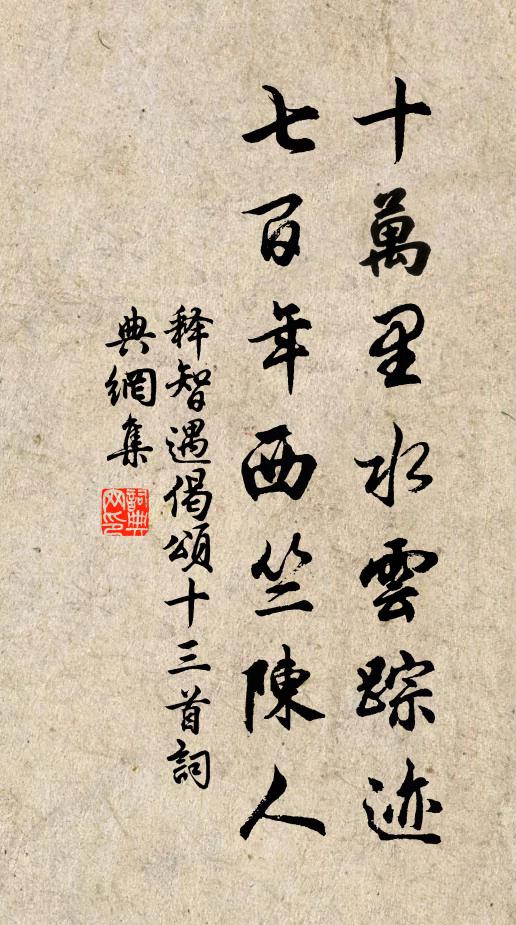 十萬里水雲踪迹
七百年西竺陳人
释智遇偈頌十三首詞
典網集
詞典
网印